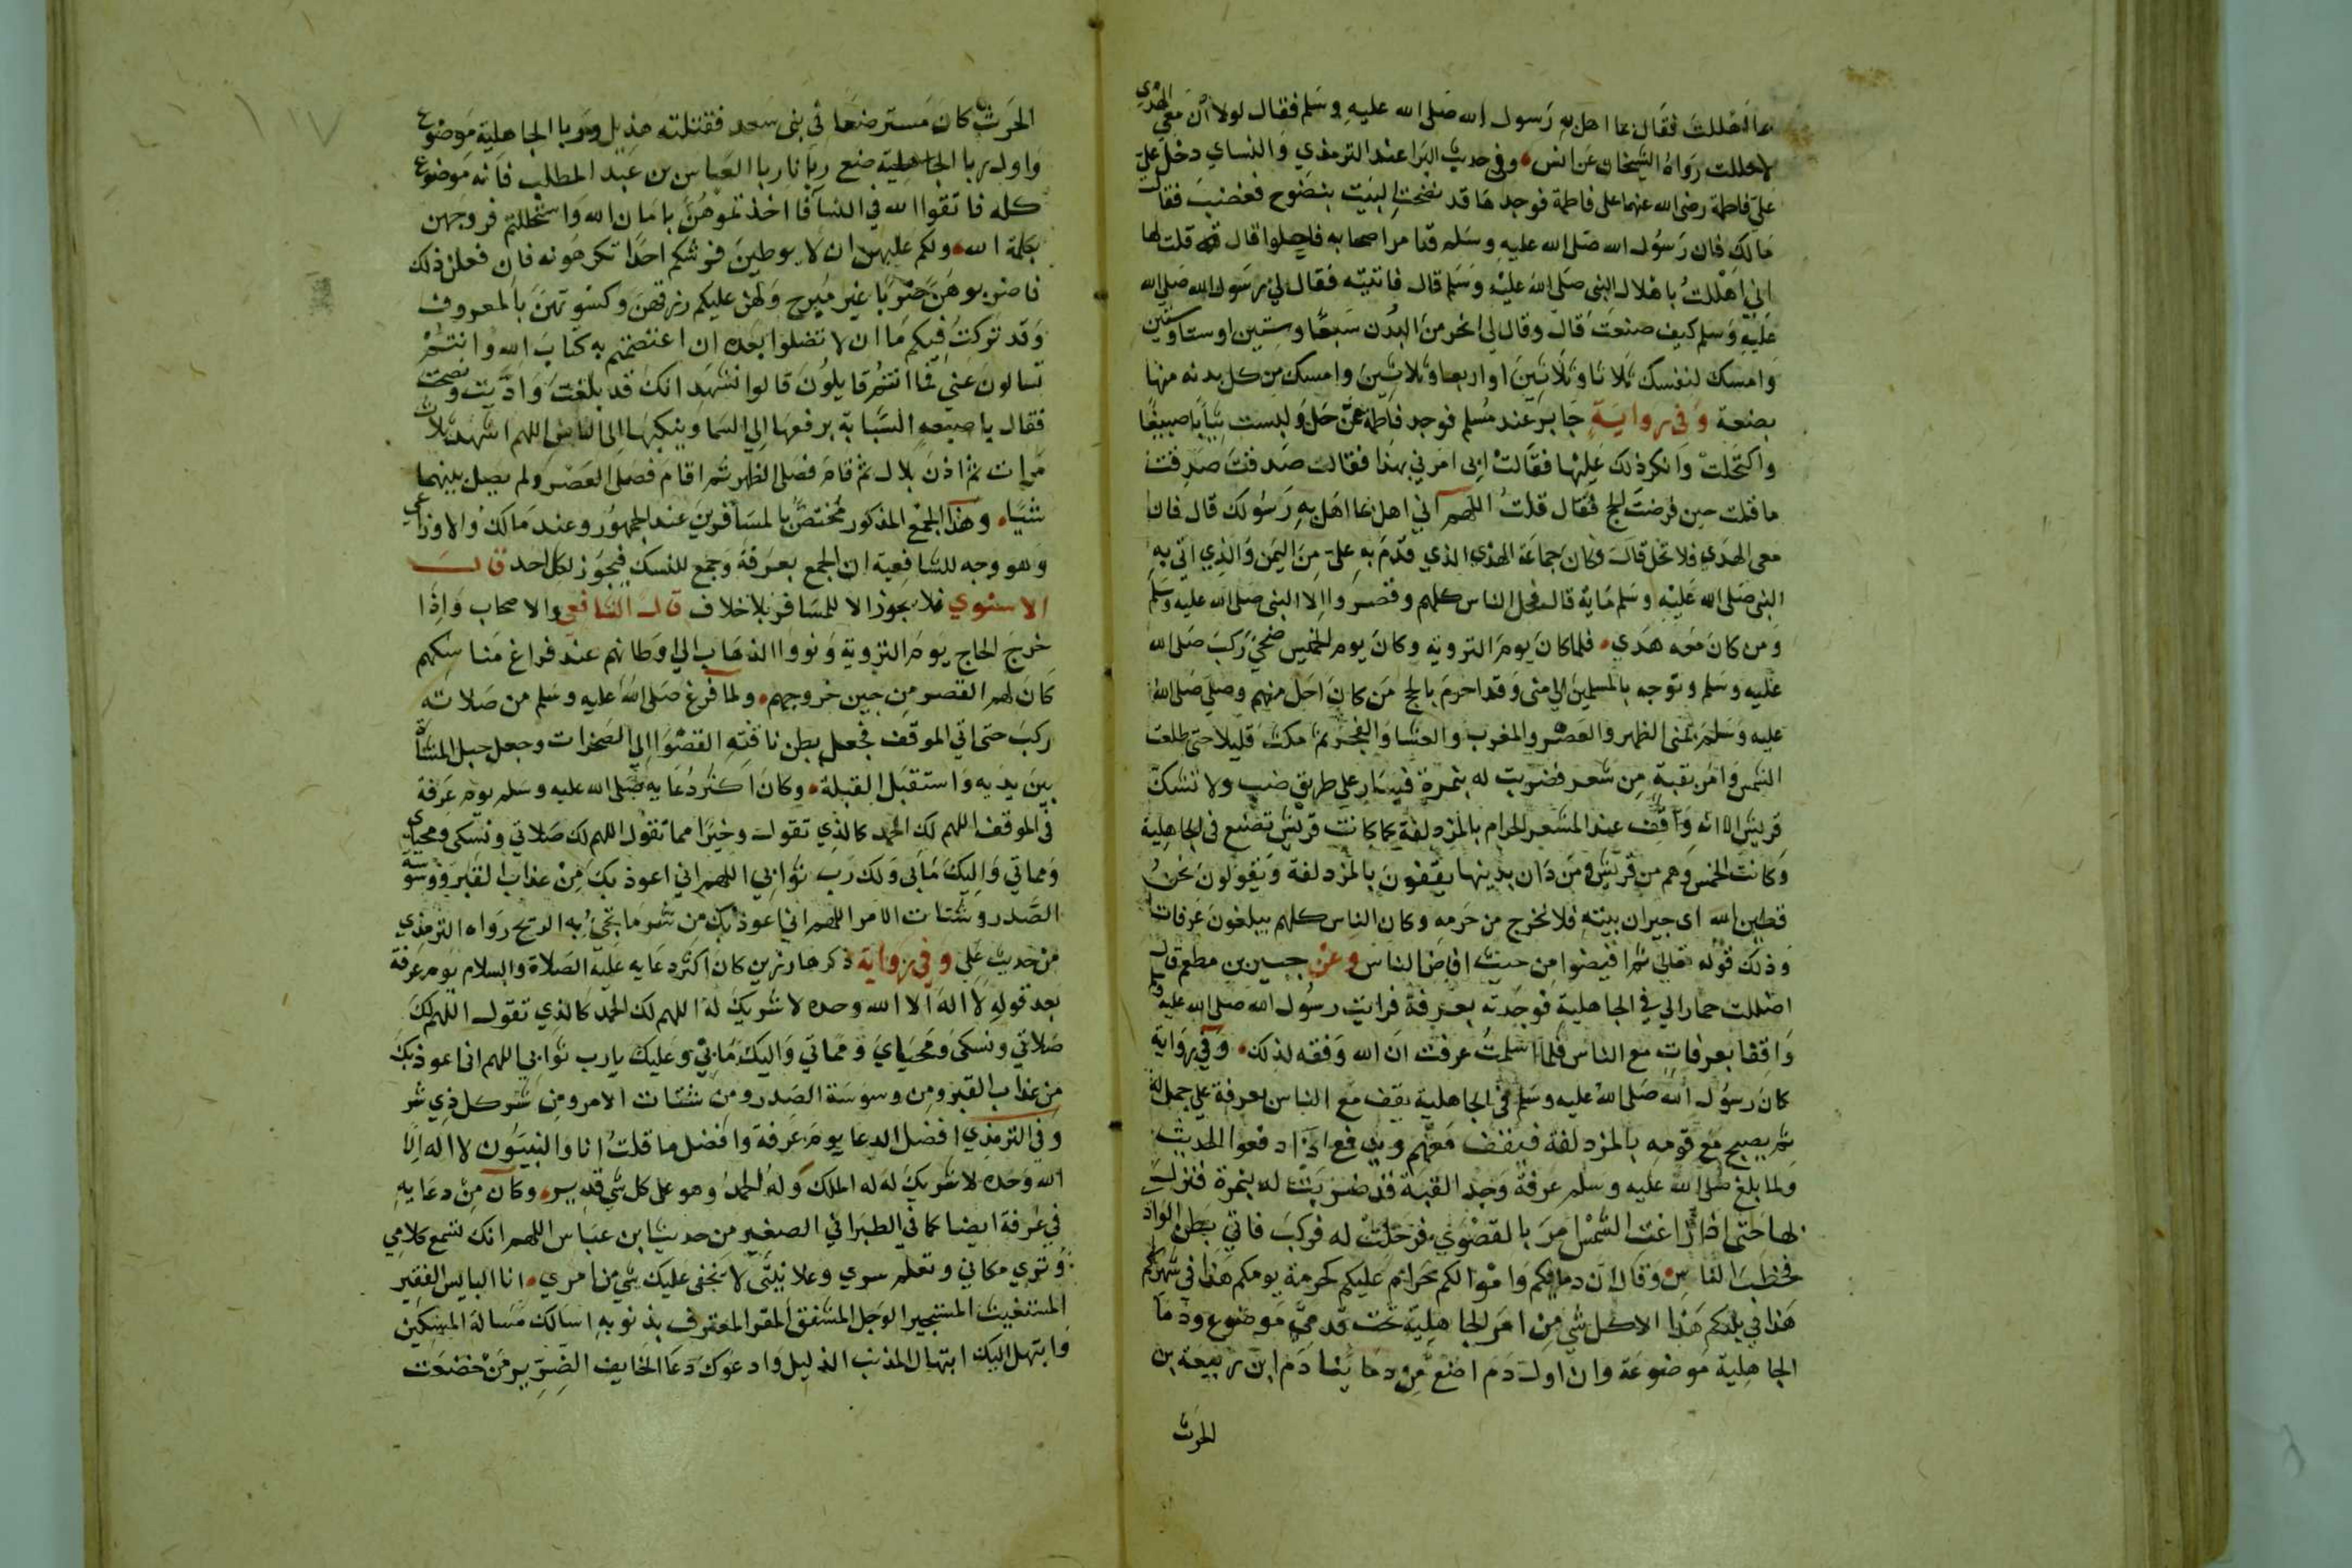 بما اهللت فقال بما اهل به رسول الله صلى الله عليه وسلم فقال لولا ان معي الهدي
لاحللت رواه الشيخان عن انس وفي حديث البرا عند الترمذي والنساي دخل علي
على فاطمة رضي الله عنهما على فاطمة فوجدها قد نضحت البيت بنضوح فغضب فقالت
مالك فان رسول الله صلى الله عليه وسلم قد امر اصحابه فاحلوا قال قلت لها
اني اهللت باهلال النبي صلى الله عليه وسلم قال فاتيته فقال لي رسول الله صلى الله
عليه وسلم كيف صنعت قال وقال لي انحر من البدن سبعا وستين او ستا وستين
وامسك لنفسك ثلاثا وثلاثين او اربعا وثلاثين وامسك من كل بدنه منها
بضعة وفي رواية جابر عند مسلم فوجد فاطمة ممن حل ولبست ثيابا صبيغا
واكتحلت وانكر ذلك عليها فقالت ابي امرني بهذا فقال صدقت صدقت
ما قلت حين فرضت الحج فقال قلت اللهم اني اهل بما اهل به رسولك قال فان
معي الهدي فلا تحل قال وكان جماعة الهدي الذي قدم به علي من اليمن والذي اتي به
النبي صلى الله عليه وسلم ماية قال فحل الناس كلهم وقصروا الا النبي صلى الله عليه وسلم
ومن كان معه هدي فلما كان يوم التروية وكان يوم الخميس ضحي ركب صلى الله
عليه وسلم وتوجه بالمسلمين الي منى وقد احرم بالحج من كان احل منهم وصلى صلى الله
عليه وسلم بمنى الظهر والعصر والمغرب والعشا والفجر ثم مكث قليلا حتى طلعت
الشمس وامر بقبة من شعر فضربت له بنمرة فسار على طريق ضب ولا تشك
قريش الا انه واقف عند المشعر الحرام بالمزدلفة كما كانت قريش تصنع في الجاهلية
وكانت الحمس وهم من قريش ومن دان بدينها يقفون بالمزدلفة ويقولون نحن
قطين الله اى جيران بيته فلا نخرج من حرمه وكان الناس كلهم يبلغون عرفات
وذلك قوله تعالى ثم افيضوا من حيث افاض الناس وعن جبير بن مطعم قال
اضللت حمارا لي في الجاهلية فوجدته بعرفة فرايت رسول الله صلى الله عليه وسلم
واقفا بعرفات مع الناس فلما اسلمت عرفت ان الله وفقه لذلك وفي رواية
كان رسول الله صلى الله عليه وسلم في الجاهلية يقف مع الناس بعرفة على جمل له
ثم يصبح مع قومه بالمزدلفة فيقف معهم ويدفع اذا دفعوا الحديث
ولما بلغ صلى الله عليه وسلم عرفة وجد القبة قد ضربت له بنمرة فنزل
بها حتى اذا زاغت الشمس امر بالقصوي فرحلت له فركب فاتي بطن الوادي
فخطب الناس وقال ان دماءكم واموالكم حرام عليكم كحرمة يومكم هذا في شهركم
هذا في بلدكم هذا الا كل شي من امر الجاهلية تحت قدمي موضوع ودما
الجاهلية موضوعة وان اول دم اضع من دماينا دم ابن ربيعة بن
الحرث
الحرث كان مسترضعا في بني سعد فقتلته هذيل وربا الجاهلية موضوع
واول ربا الجاهلية ضع ربانا ربا العباس بن عبد المطلب فانه موضوع
كله فاتقوا الله في النسا فا اخذتموهن بامان الله واستحللتم فروجهن
بكلمة الله ولكم عليهن ان لا يوطين فرشكم احدا تكرهونه فان فعلن ذلك
فاضربوهن ضربا غير مبرح ولهن عليكم رزقهن وكسوتهن بالمعروف
وقد تركت فيكم ما ان لا تضلوا بعده ان اعتصمتم به كتاب الله وانتم
تسالون عني فما انتم قايلون قالوا نشهد انك قد بلغت واديت ونصحت
فقال باصبعه السبابة يرفعها الي السما وينكبها الى الناس اللهم اشهد ثلاث
مرات ثم اذن بلال ثم قام فصلى الظهر ثم اقام فصلى العصر ولم يصل بينهما
شيا وهذا الجمع المذكور مختص بالمسافرين عند الجمهور وعند مالك والاوزاعي
وهو وجه للشافعية ان الجمع بعرفة وجمع للنسك فيجوز لكل احد قال
الاسنوي فلا يجوز الا للمسافر بلا خلاف قال الشافعي والاصحاب واذا
خرج الحاج يوم التروية ونووا الذهاب الي اوطانهم عند فراغ مناسكهم
كان لهم القصر من حين خروجهم ولما فرغ صلى الله عليه وسلم من صلاته
ركب حتى اتي الموقف فجعل بطن ناقته القصوا الي الصخرات وجعل حبل المشاة
بين يديه واستقبل القبلة وكان اكثر دعايه صلى الله عليه وسلم يوم عرفة
في الموقف اللهم لك الحمد كالذي تقول وخيرا مما نقول اللهم لك صلاتي ونسكي ومحياي
ومماتي واليك مابي ولك رب تراثي اللهم اني اعوذ بك من عذاب القبر ووسوسة
الصدر وشتات الامر اللهم اني اعوذ بك من شر ما تجي به الريح رواه الترمذي
من حديث علي وفي رواية ذكرها رزين كان اكثر دعايه عليه الصلاة والسلام يوم عرفة
بعد قوله لا اله الا الله وحده لا شريك له اللهم لك الحمد كالذي تقول اللهم لك
صلاتي ونسكي ومحياي ومماتي واليك مابي وعليك يا رب ثوابي اللهم اني اعوذ بك
من عذاب القبر ومن وسوسة الصدر ومن شتات الامر ومن شر كل ذي شر
وفي الترمذي افضل الدعا يوم عرفة وافضل ما قلت انا والنبيون لا اله الا
الله وحده لا شريك له له الملك وله الحمد وهو على كل شي قدير وكان من دعايه
في عرفة ايضا كما في الطبراني الصغير من حديث ابن عباس اللهم انك تسمع كلامي
وتري مكاني وتعلم سري وعلانيتي لا يخفى عليك شي من امري انا البايس الفقير
المستغيث المستجير الوجل المشفق المقر المعترف بذنوبه اسالك مسالة المسكين
وابتهل اليك ابتهال المذنب الذليل وادعوك دعا الخايف الضرير من خضعت